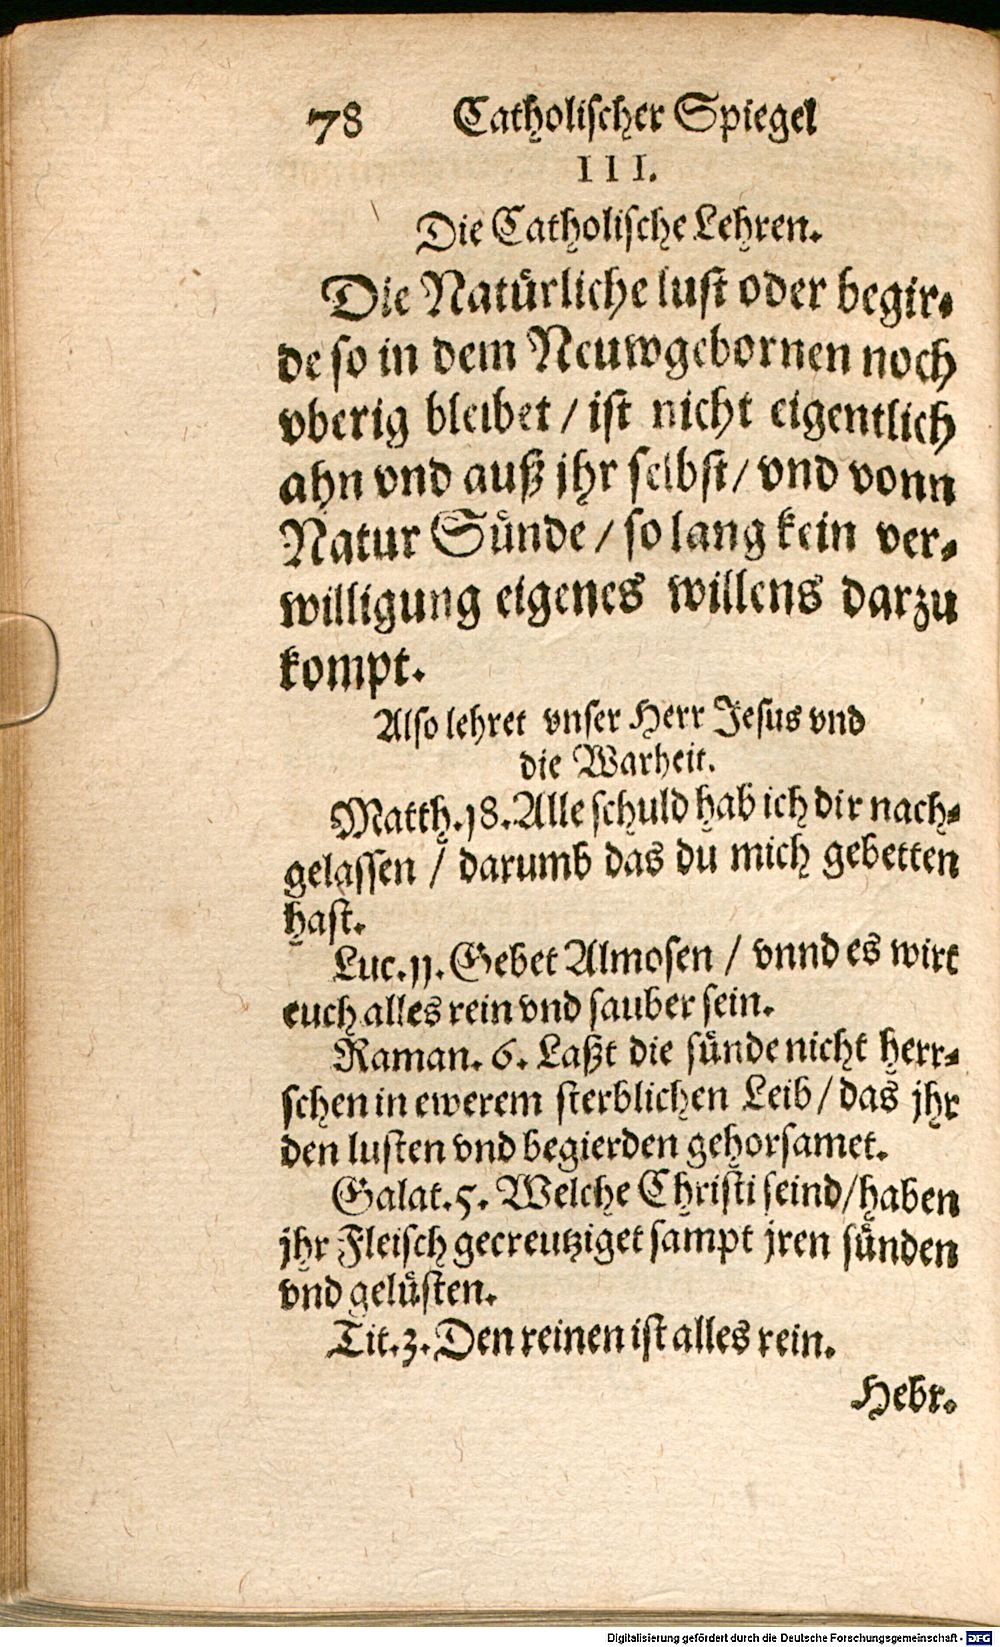 78 Catholischer Spiegel
III.
Die Catholische Lehren.
Die Natürliche lust oder begir-
de so in dem Neuwgebornen noch
vberig bleibet / ist nicht eigentlich
ahn vnd auß jhr selbst / vnd vonn
Natur Sünde / so lang kein ver-
willigung eigenes willens darzu
kompt.
Also lehret vnser Herr Jesus vnd
die Warheit.
Matth. 18. Alle schuld hab ich dir nach-
gelassen / darumb das du mich gebetten
hast.
Luc. 11. Gebet Almosen / vnnd es wirt
euch alles rein vnd sauber sein.
Raman. 6. Laßt die sünde nicht herr-
schen in ewerem sterblichen Leib / das jhr
den lusten vnd begierden gehorsamet.
Galat. 5. Welche Christi seind / haben
jhr Fleisch gecreutziget sampt jren sünden
vnd gelüsten.
Tit. 3. Den reinen ist alles rein.
Hebr.
Digitalisierung gefördert durch die Deutsche Forschungsgemeinschaft - DFG